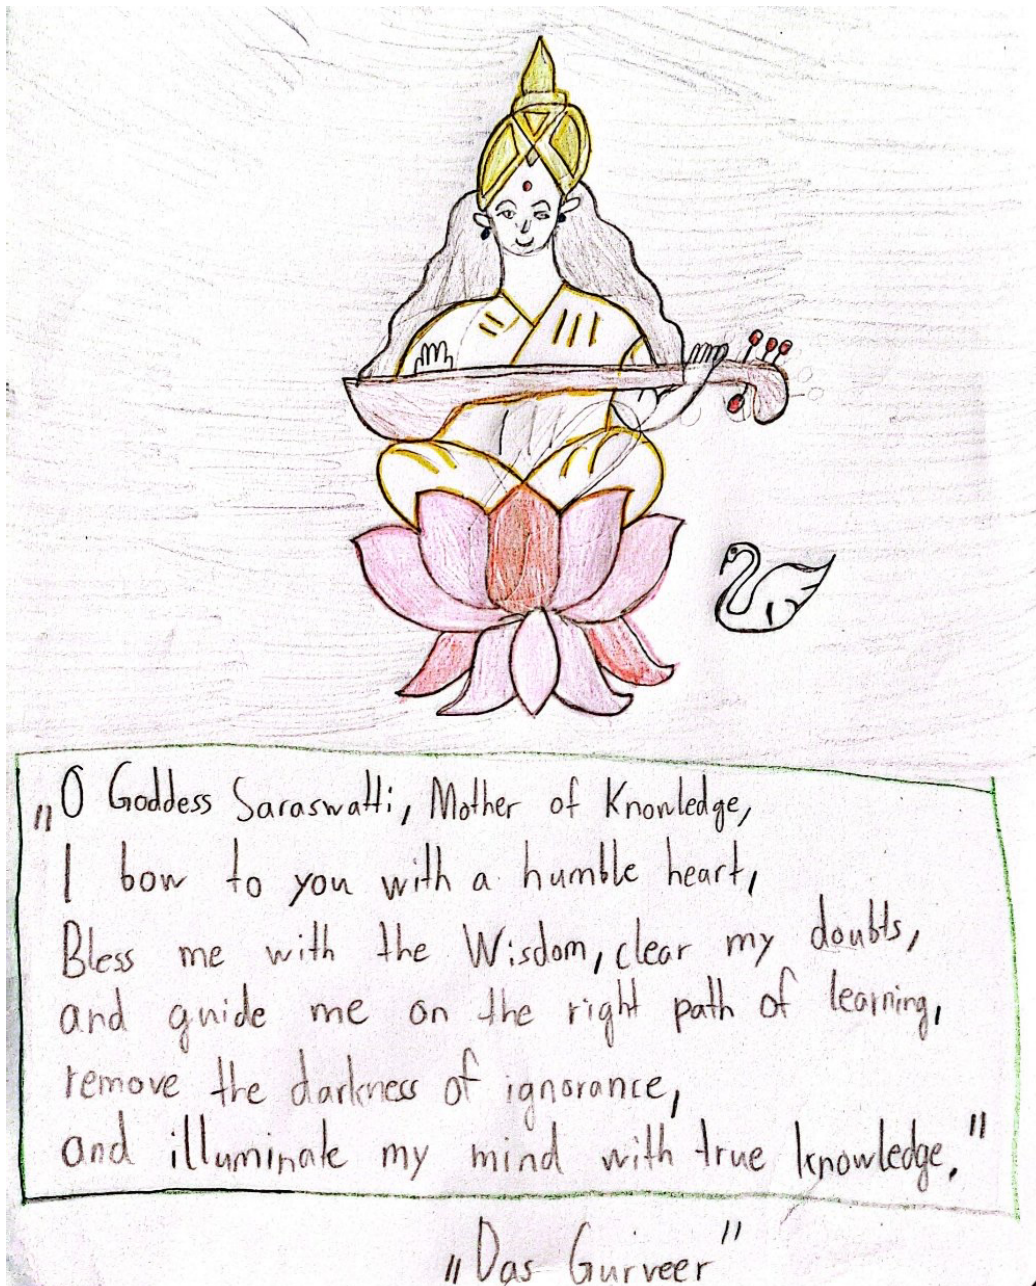 „O Goddess Saraswatti, Mother of Knowledge,
I bow to you with a humble heart,
Bless me with the Wisdom, clear my doubts,
and guide me on the right path of learning,
remove the darkness of ignorance,
and illuminate my mind with true knowledge."
„Das Gurveer"